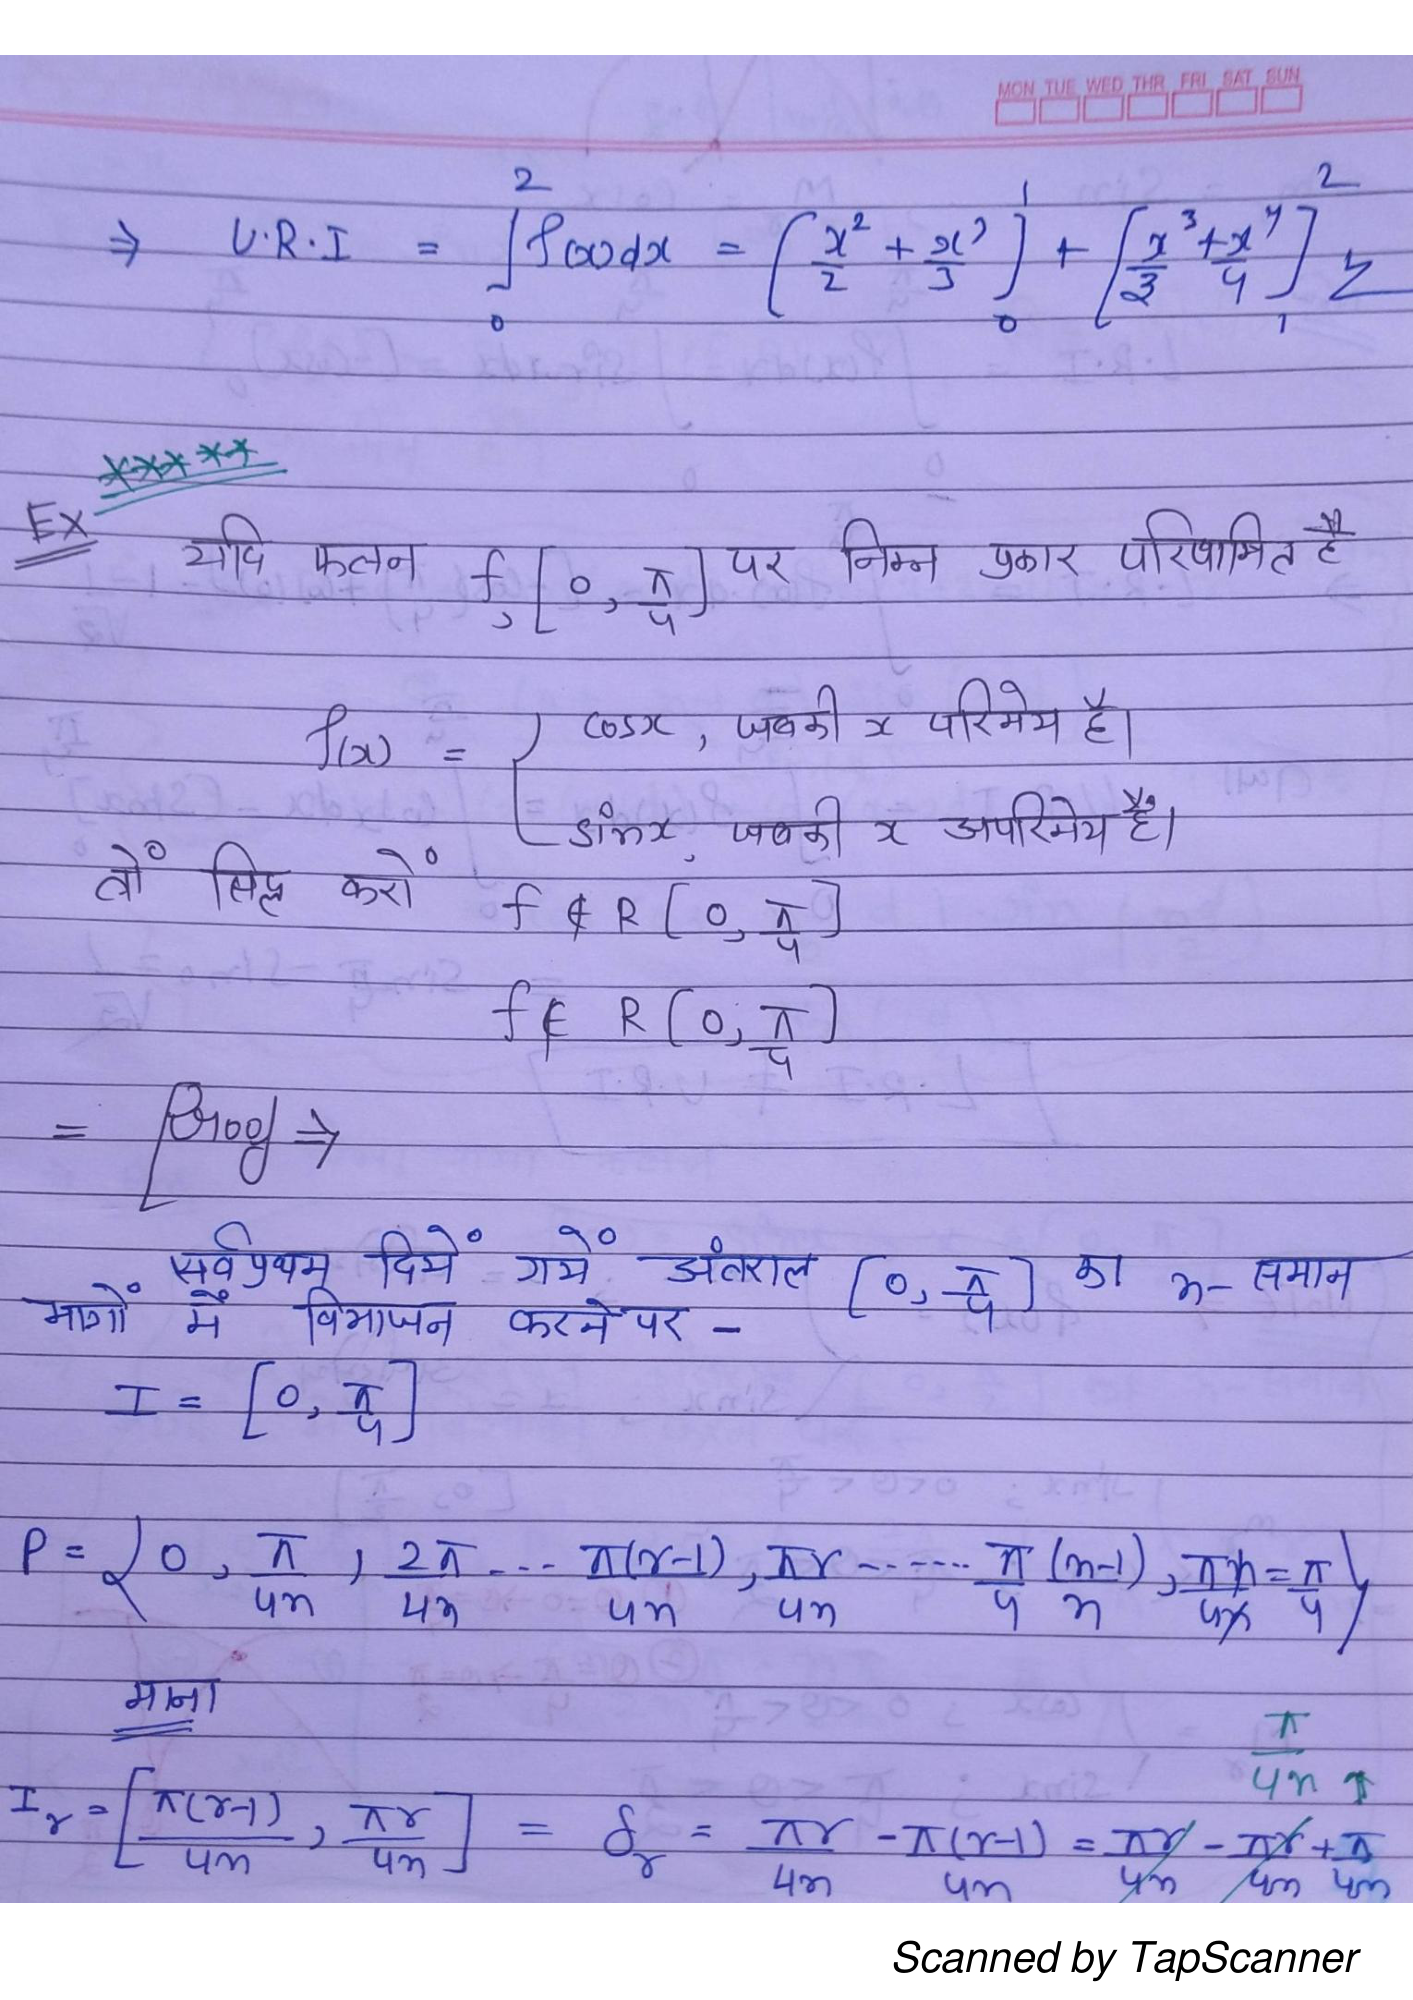 MON TUE WED THR FRI SAT SUN
⇒ U.R.I = ∫₀² f(x)dx = [x²/2 + x³/3]₀¹ + [x³/3 + x⁴/4]₁²
*****
Ex यदि फलन f, [0, π/4] पर निम्न प्रकार परिभाषित है
f(x) = { cosx, जबकी x परिमेय है।
sinx, जबकी x अपरिमेय है।
तों सिद्ध करों f ∉ R [0, π/4]
f ∉ R [0, π/4]
= Proof ⇒
सर्वप्रथम दियें गयें अंतराल [0, π/4] का n- समान
भागों में विभाजन करने पर -
I = [0, π/4]
P = { 0, π/4n, 2π/4n ... π(r-1)/4n, πr/4n ...... π/4 (n-1)/n, πn/4n = π/4 }
माना
π/4n
I_r = [π(r-1)/4n, πr/4n] = δ_r = πr/4n - π(r-1)/4n = πr/4n - πr/4n + π/4n
Scanned by TapScanner